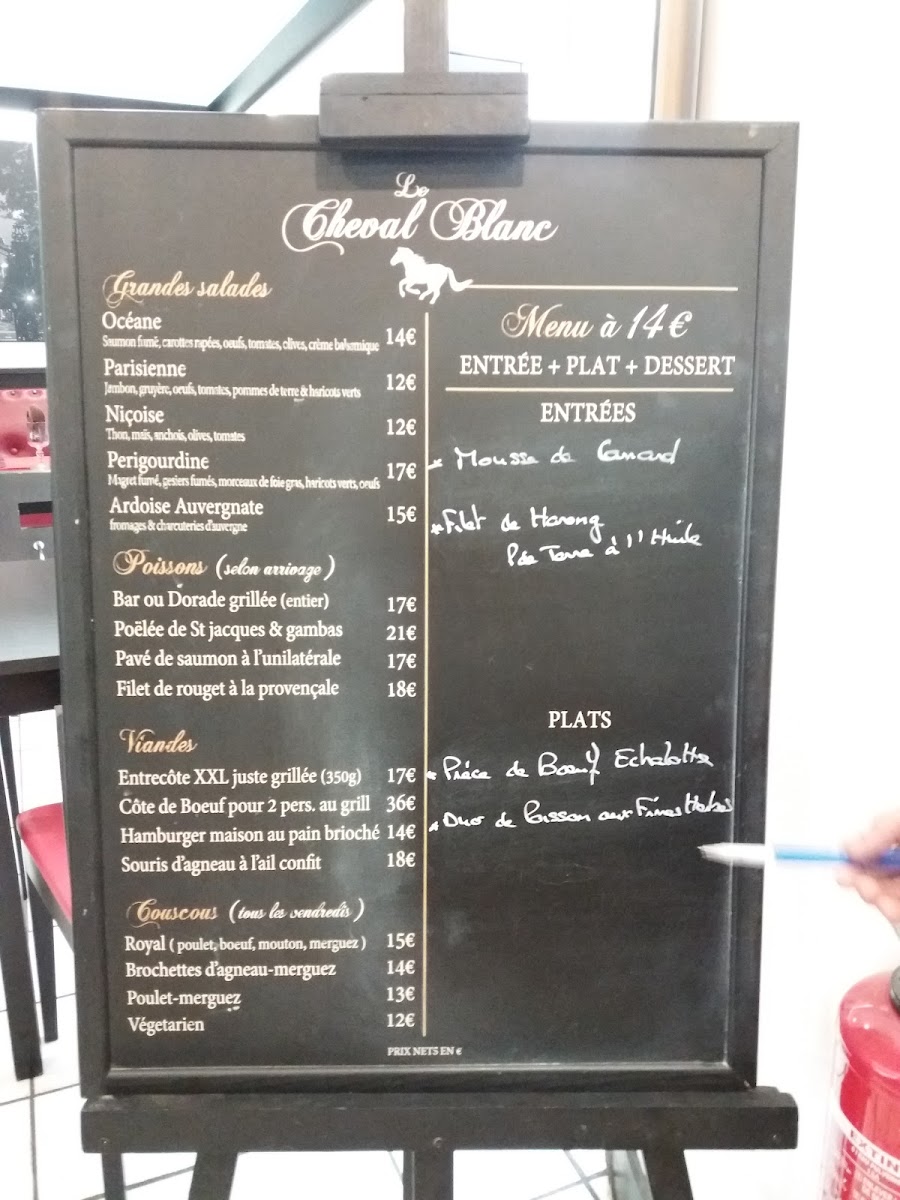 Le
Cheval Blanc
Grandes salades
Océane
Saumon fumé, carottes rapées, oeufs, tomates, olives, crème balsamique 14€
Parisienne
Jambon, gruyère, oeufs, tomates, pommes de terre & haricots verts 12€
Niçoise
Thon, maïs, anchois, olives, tomates 12€
Perigourdine
Magret fumé, gesiers fumés, morceaux de foie gras, haricots verts, oeufs 17€
Ardoise Auvergnate
fromages & charcuteries d'auvergne 15€
Poissons (selon arrivage)
Bar ou Dorade grillée (entier) 17€
Poëlée de St jacques & gambas 21€
Pavé de saumon à l'unilatérale 17€
Filet de rouget à la provençale 18€
Viandes
Entrecôte XXL juste grillée (350g) 17€
Côte de Boeuf pour 2 pers. au grill 36€
Hamburger maison au pain brioché 14€
Souris d'agneau à l'ail confit 18€
Couscous (tous les vendredis)
Royal ( poulet, boeuf, mouton, merguez ) 15€
Brochettes d'agneau-merguez 14€
Poulet-merguez 13€
Végetarien 12€
PRIX NETS EN €
Menu à 14€
ENTRÉE + PLAT + DESSERT
ENTRÉES
* Mousse de Canard
* Filet de Hareng
P de Terre à l'Huile
PLATS
* Pièce de Boeuf Echalotte
* Duo de Poisson aux Fines Herbes
EXTIN